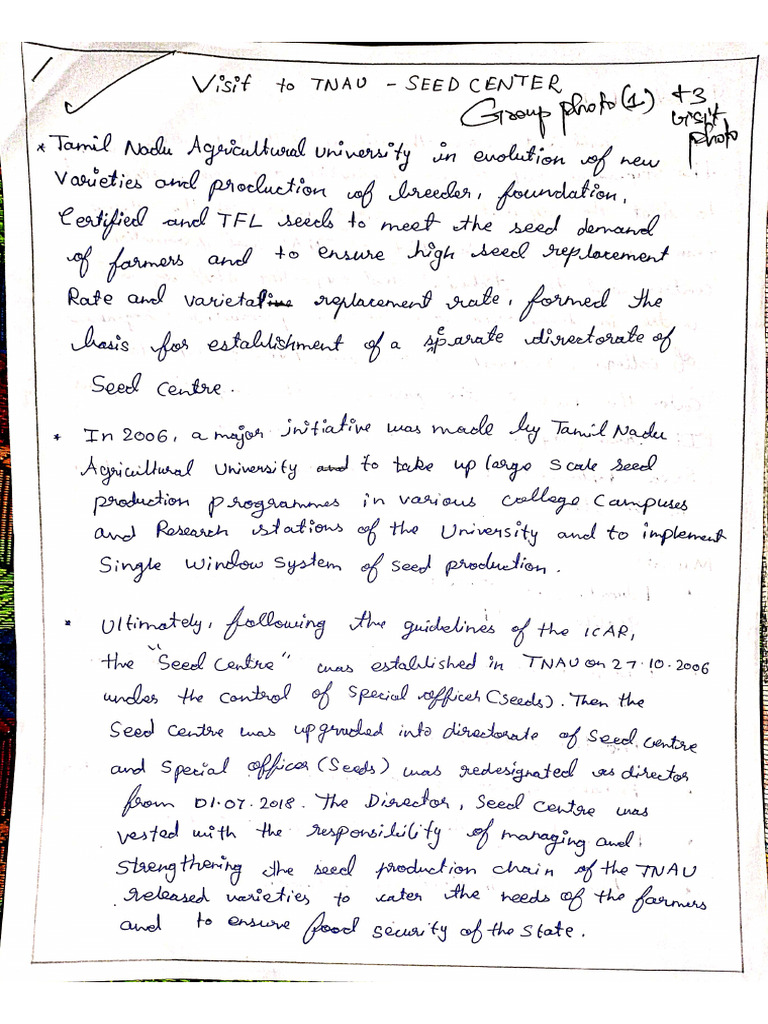 Visit to TNAU - SEED CENTER
Group photo (1) +3
visit
photo
* Tamil Nadu Agricultural university in evolution of new
Varieties and production of breeder, foundation,
Certified and TFL seeds to meet the seed demand
of farmers and to ensure high seed replacement
Rate and varietal replacement rate, formed the
basis for establishment of a separate directorate of
Seed centre.
* In 2006, a major initiative was made by Tamil Nadu
Agricultural University and to take up large Scale seed
production programmes in various college Campuses
and Research stations of the University and to implement
Single Window System of seed production.
* Ultimately, following the guidelines of the ICAR,
the "Seed Centre" was established in TNAU on 27.10.2006
under the control of Special officer (Seeds). Then the
Seed Centre was upgraded into directorate of Seed centre
and Special officer (Seeds) was redesignated as director
from 01.07.2018. The Director, Seed Centre was
vested with the responsibility of managing and
Strengthening the seed production chain of the TNAU
released varieties to cater the needs of the farmers
and to ensure food security of the State.